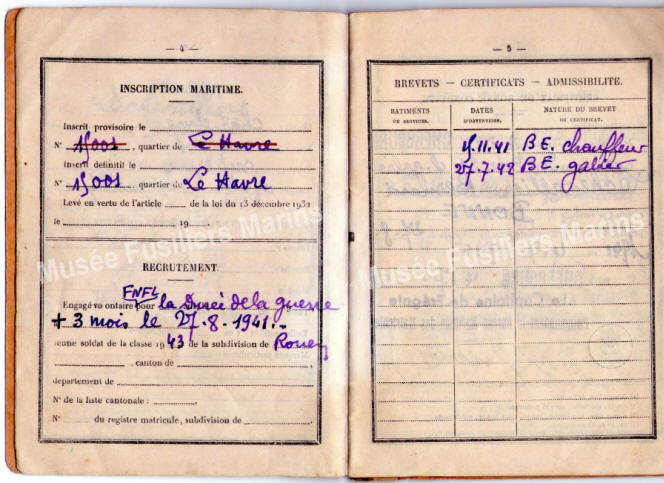 — 4 —
INSCRIPTION MARITIME.
Inscrit provisoire le
N° 15001, quartier de Le Havre
Inscrit définitif le
N° 15001, quartier de Le Havre
Levé en vertu de l'article de la loi du 13 décembre 1932
le 19
RECRUTEMENT.
FNFL
Engagé volontaire pour la Durée de la guerre
+ 3 mois le 27.8.1941.-
Jeune soldat de la classe 1943 de la subdivision de Rouen
, canton de
département de
N° de la liste cantonale :
N° du registre matricule, subdivision de
— 5 —
BREVETS — CERTIFICATS — ADMISSIBILITE.
BATIMENTS DATES NATURE DU BREVET
OU SERVICES. D'OBTENTION. OU CERTIFICAT.
.11.41 B E. chauffeur
27.7.42 B E. gabier
Musée Fusiliers Marins
Musée Fusiliers Marins